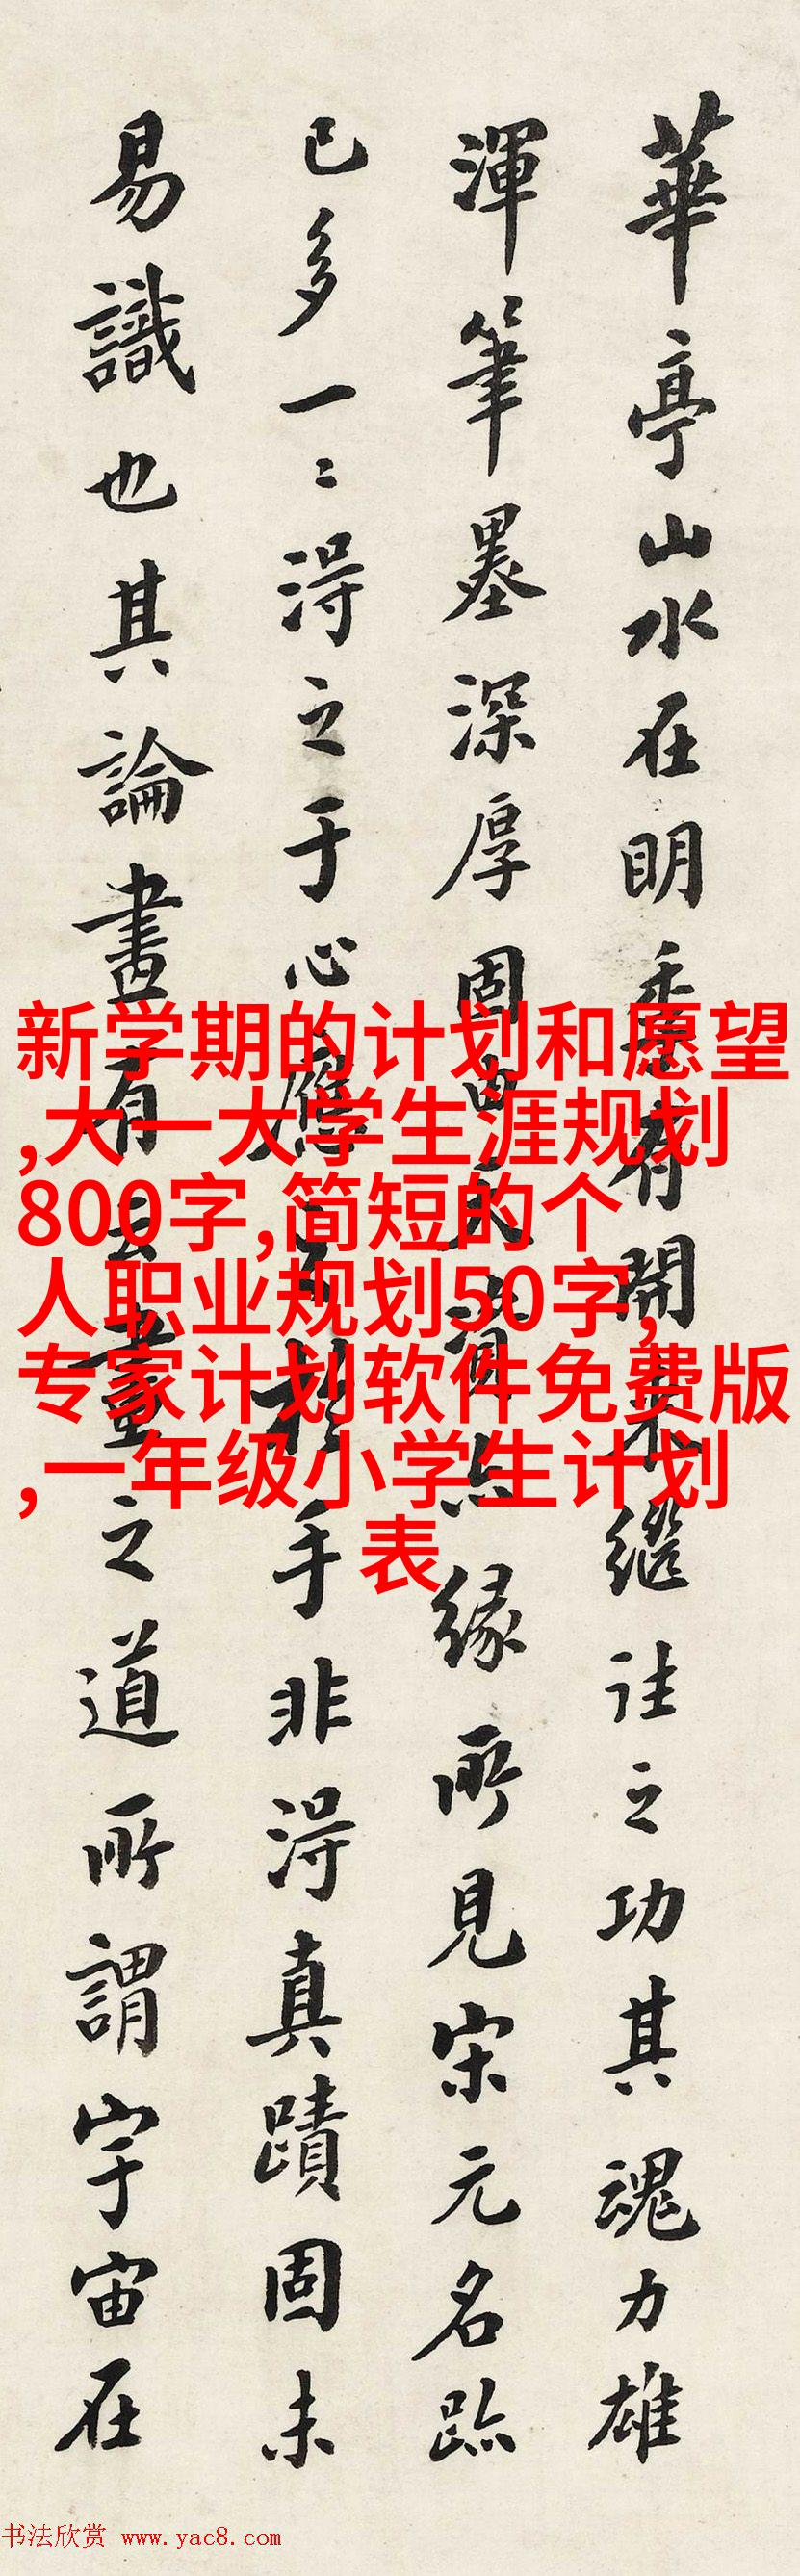 華亭山水在明季有開來繼往之功其魂力雄
渾筆墨深厚固由天資亦緣所見宋元名跡
已多一〻得之于心應之於手非得真蹟固未
易識也其論畫有云畫之道所謂宇宙在
新学期的计划和愿望
,大一大学生涯规划
800字,简短的个
人职业规划50字,
专家计划软件免费版
,一年级小学生计划
表
书法欣赏 www.yac8.com